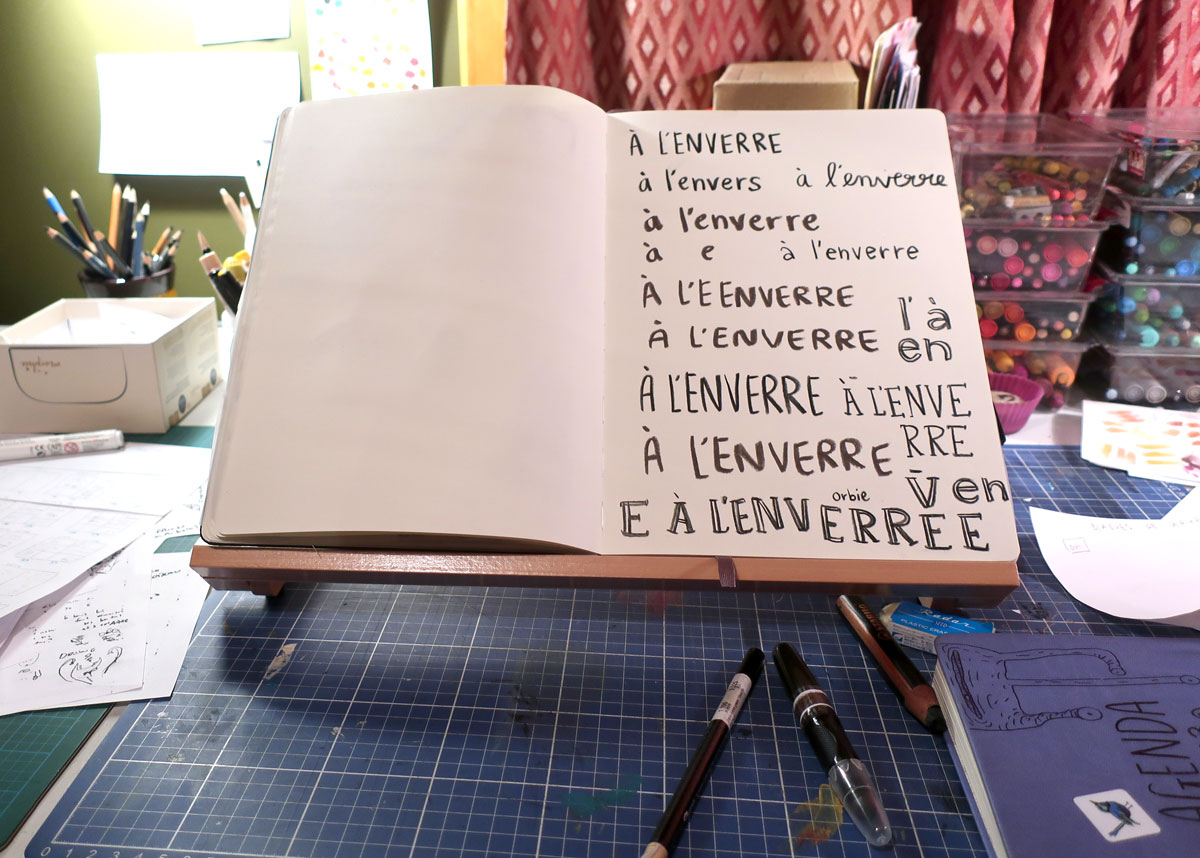 À L'ENVERRE
à l'envers à l'enverre
à l'enverre
à e à l'enverre
À L'EENVERRE
À L'ENVERRE
l' à
en
À L'ENVERRE
À L'ENVE
RRE
À L'ENVERRE
V en
orbie
E À L'ENVERREE
Radar
PLASTIC ERA
AGENDA
0 1 2 3 4